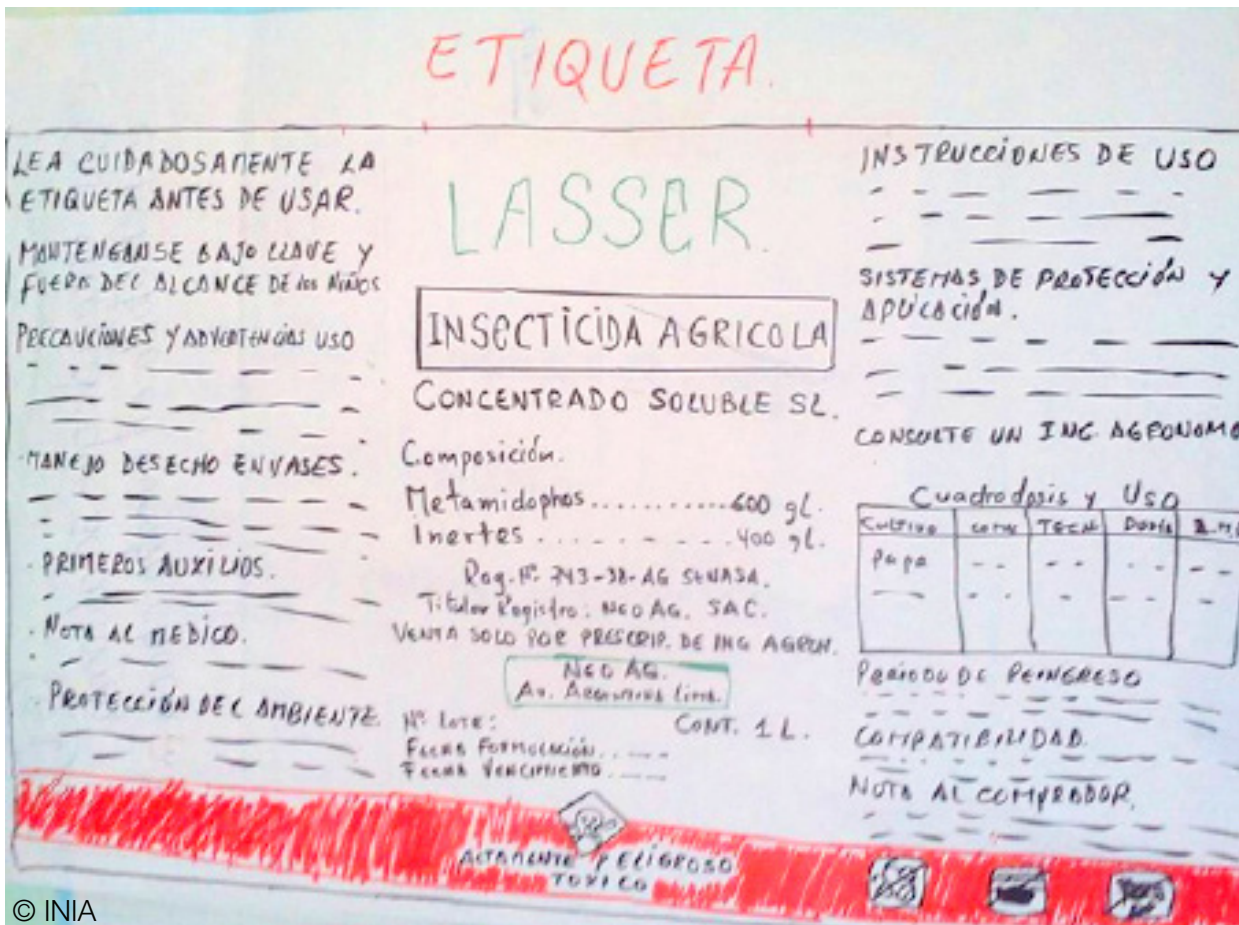 ETIQUETA.
LEA CUIDADOSAMENTE LA
ETIQUETA ANTES DE USAR.
MANTENGANSE BAJO LLAVE Y
FUERA DEL ALCANCE DE los NIÑOS
PRECAUCIONES Y ADVERTENCIAS USO
MANEJO DESECHO ENVASES.
PRIMEROS AUXILIOS.
NOTA AL MEDICO.
PROTECCIÓN DEL AMBIENTE
LASSER.
INSECTICIDA AGRICOLA
CONCENTRADO SOLUBLE SL.
Composición.
Metamidophos............600 gl.
Inertes.........400 gl.
Reg. Nº 743-98-AG SENASA.
Titular Registro: NEO AG. SAC.
VENTA SOLO POR PRESCRIP. DE ING AGRON.
NEO AG.
Av. Argentina Lima.
Nº LOTE: CONT. 1 L.
FECHA FORMULACIÓN.
FECHA VENCIMIENTO.
INSTRUCCIONES DE USO
SISTEMAS DE PROTECCIÓN Y
APLICACIÓN.
CONSULTE UN ING. AGRONOMO
Cuadro dosis y Uso
CULTIVO TECN DOSIS
Papa
PERIODO DE REINGRESO
COMPATIBILIDAD.
NOTA AL COMPRADOR.
ALTAMENTE PELIGROSO
TOXICO
© INIA